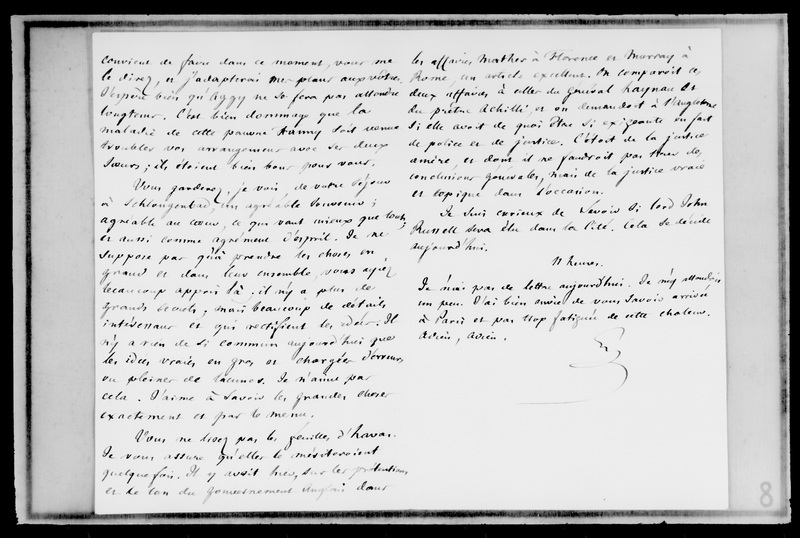 convient de faire dans ce moment, vous me
le direz, et j'adapterai mes plans aux vôtres.
J'espère bien qu'Aggy ne se fera pas attendre
longtems. C'est bien dommage que la
maladie de cette pauvre Fanny soit venue
troubler vos arrangemens avec ses deux
sœurs ; ils étoient bien bons pour vous.
Vous garderez, je vois, de votre séjour
à Schlangenbad, un agréable souvenir ;
agréable au cœur, ce qui vaut mieux que tout,
et aussi comme agrément d'esprit. Je ne
suppose pas qu'à prendre les choses en
grand et dans leur ensemble, vous ayez
beaucoup appris là ; il n'y a plus de
grands secrets, mais beaucoup de détails
intéressans et qui rectifient les idées. Il
n'y a rien de si commun aujourd'hui que
les idées vraies en gros et chargées d'erreurs
ou pleines de lacunes. Je n'aime pas
cela. J'aime à savoir les grandes choses
exactement et par le menu.
Vous ne lisez pas les feuilles d'havas.
Je vous assure qu'elles le mériteroient
quelquefois. Il y avoit hier, sur les prétentions
et le ton du gouvernement Anglais dans
les affaires Mather à Florence et Murray à
Rome, un article excellent. On comparoit ces
deux affaires à celles du général haynau et
du prêtre Achilli, et on demandoit à l'Angleterre
si elle avoit de quoi être si exigeante en fait
de police et de justice. C'étoit de la justice
amère, et dont il ne faudroit pas tirer des
conclusions générales, mais de la justice vraie
et topique dans l'occasion.
Je suis curieux de savoir si lord John
Russell sera élu dans la Cité. Cela se décide
aujourd'hui.
11 heures.
Je n'ai pas de lettre aujourd'hui. Je m'y attendois
un peu. J'ai bien envie de vous savoir arrivée
à Paris et pas trop fatiguée de cette chaleur.
Adieu, adieu.
8